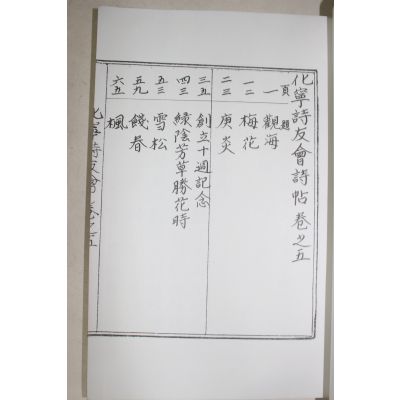 化寧詩友會詩帖 卷之五
頁 題
一 觀海
一二 梅花
二三 庚炎
三五 創立十週記念
四三 綠陰芳草勝花時
五三 雪松
五九 餞春
六五 楓
化寧詩友會 卷之五